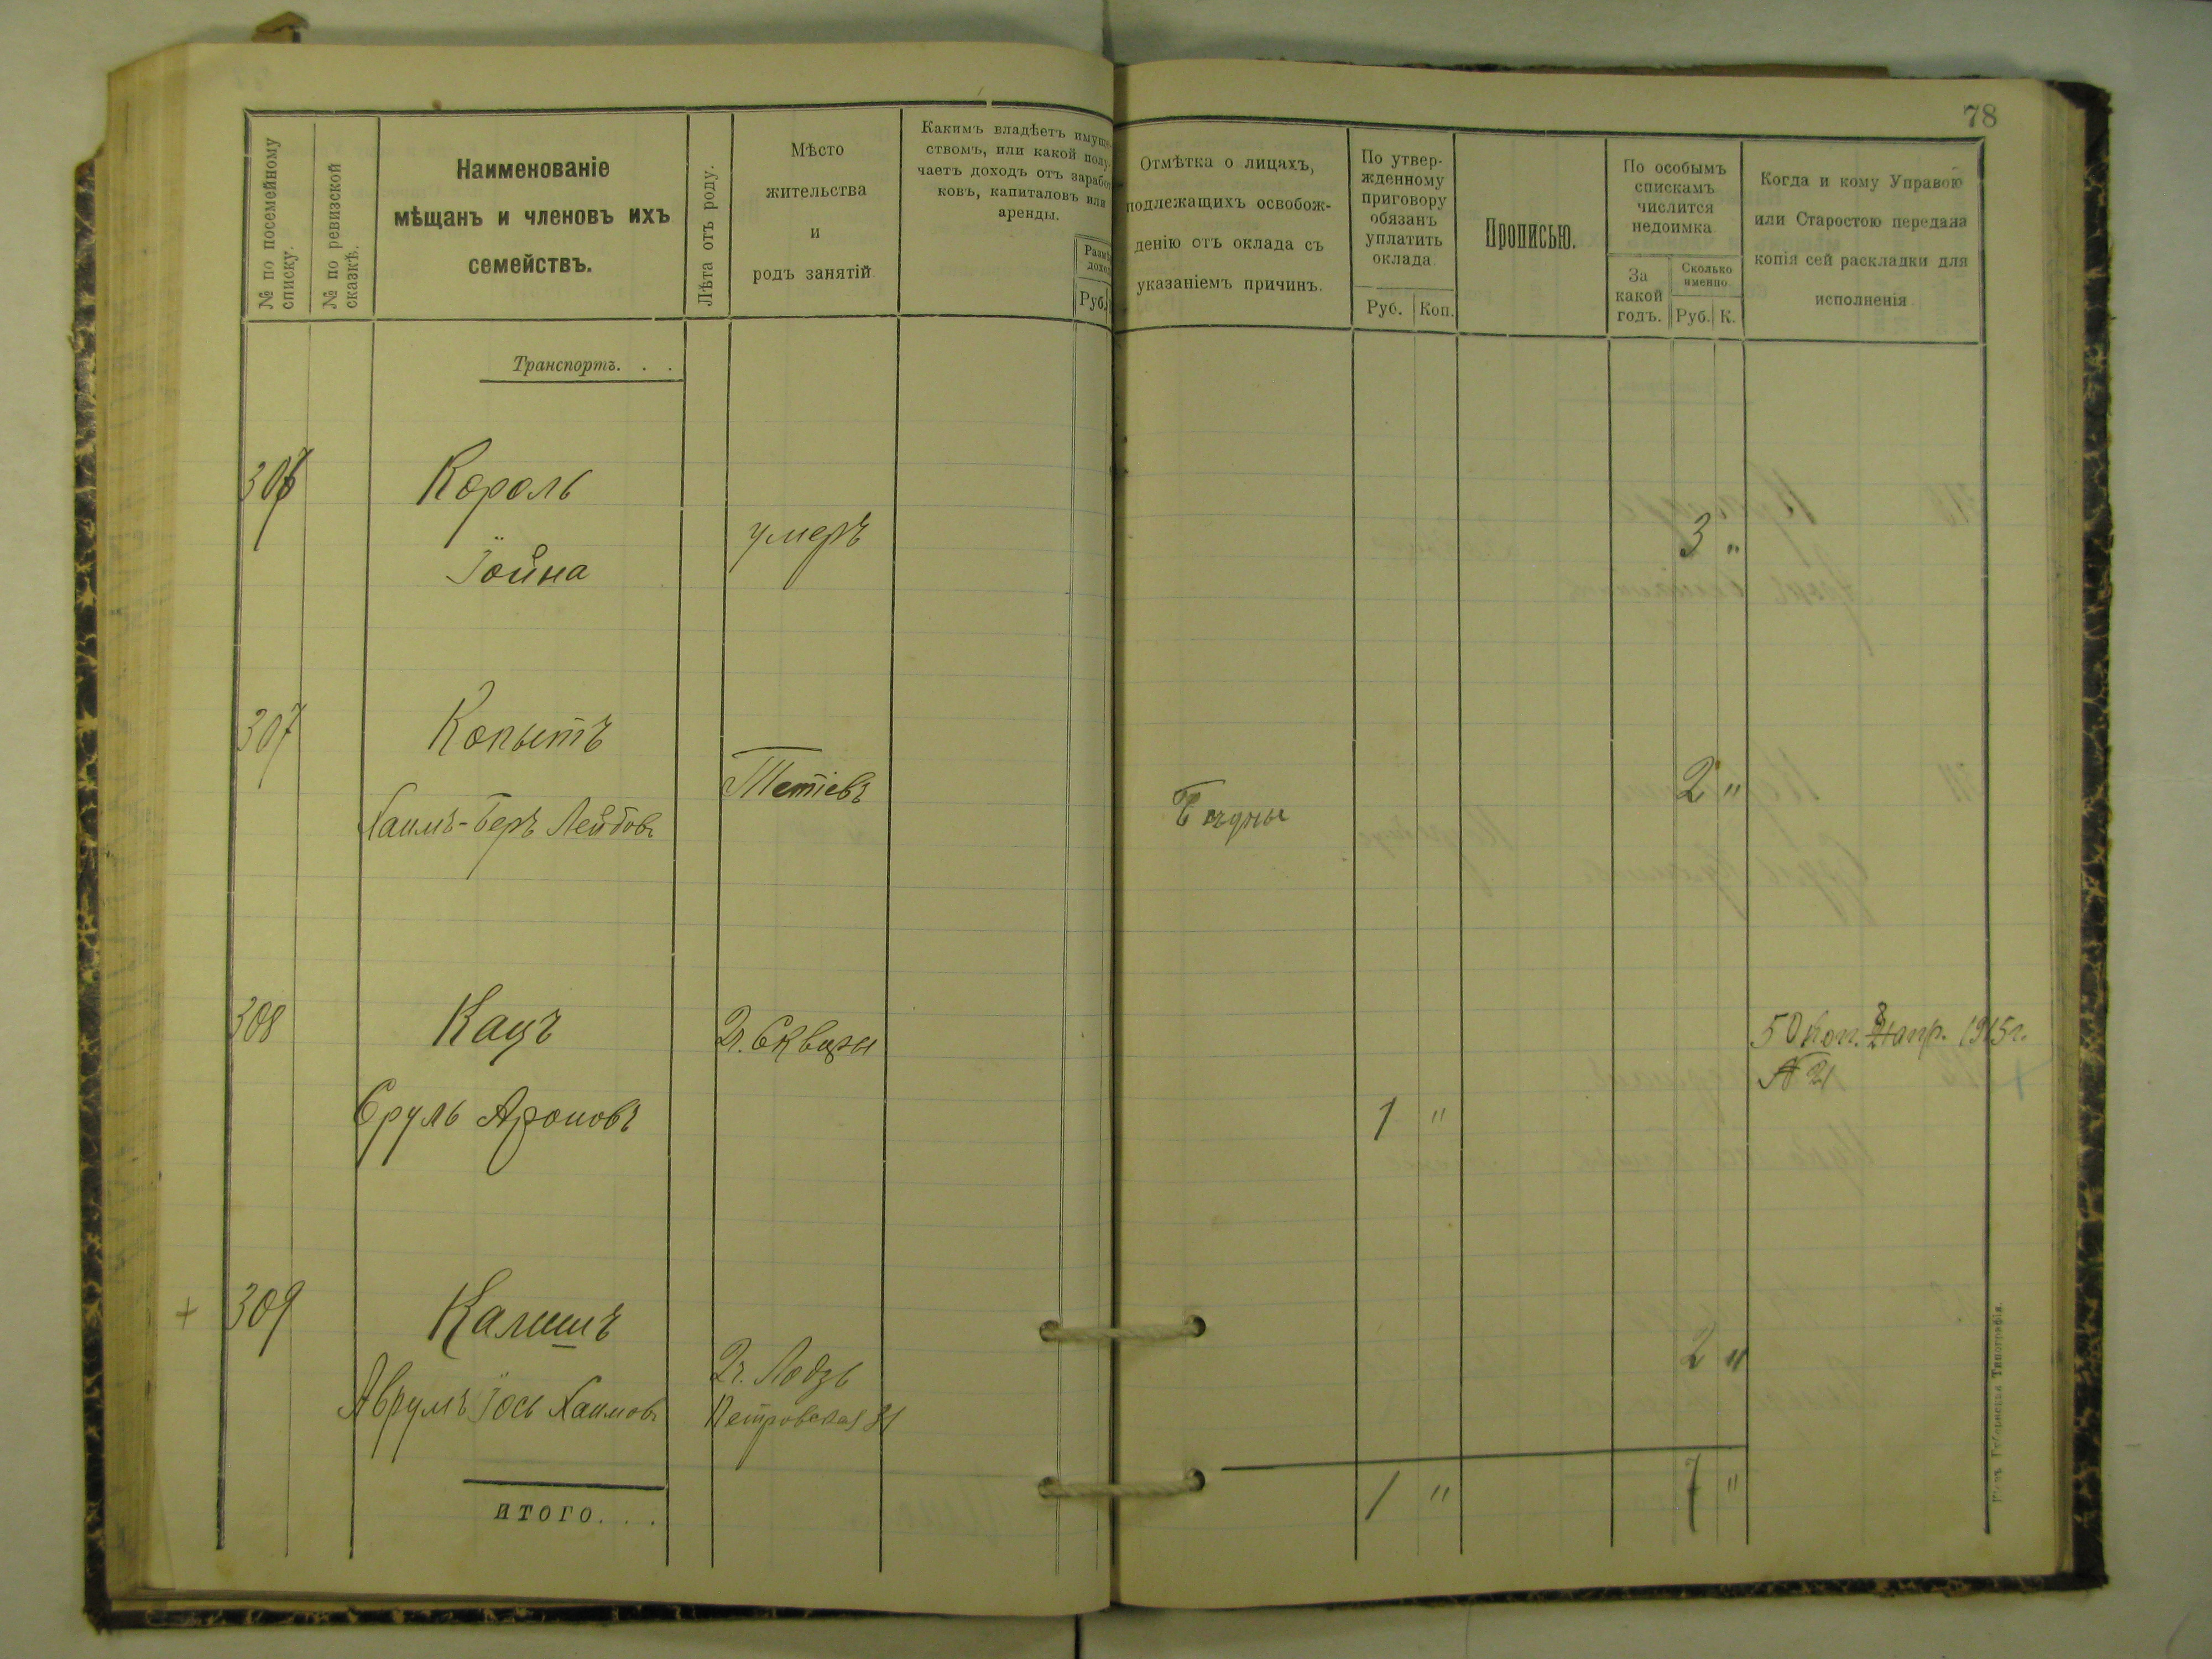 78
№ по посемейному
списку.
№ по ревизской
сказкѣ.
Наименованіе
мѣщанъ и членовъ ихъ
семействъ.
Лѣта отъ роду.
Мѣсто
жительства
и
родъ занятій
Какимъ владѣетъ имуще-
ствомъ, или какой полу-
чаетъ доходъ отъ заработ-
ковъ, капиталовъ или
аренды.
Руб.
Отмѣтка о лицахъ,
подлежащихъ освобож-
денію отъ оклада съ
указаніемъ причинъ.
По утвер-
жденному
приговору
обязанъ
уплатить
оклада
Руб. Коп.
Прописью.
По особымъ
спискамъ
числится
недоимка
За
какой
годъ.
Сколько
именно
Руб. К.
Когда и кому Управою
или Старостою передана
копія сей раскладки для
исполненія
Транспортъ. . .
306 Король
Іойна
умеръ
3 "
307 Копытъ
Хаимъ-Беръ Лейбовъ
Тетіевъ
Бѣдны
2 "
308 Кацъ
Сруль Ароновъ
Г. Сквира
1 "
50 коп. 8 апр. 1915 г.
№ 21
+ 309 Калишъ
Аврумъ Іось Хаимовъ
Г. Лодзь
Петровская 31
2 "
итого. . .
1 " 7 "
Кіевъ. Губернская Типографія.